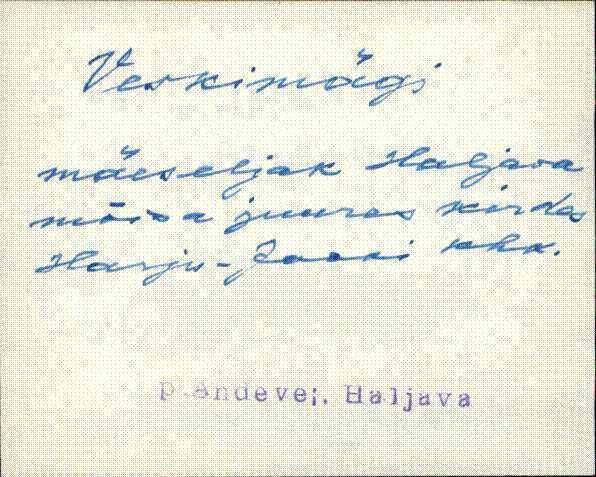 Veskimägi
mäeseljak Haljava
mõisa juures kirdes
Harju-Jaani khk.
P. Andevei, Haljava